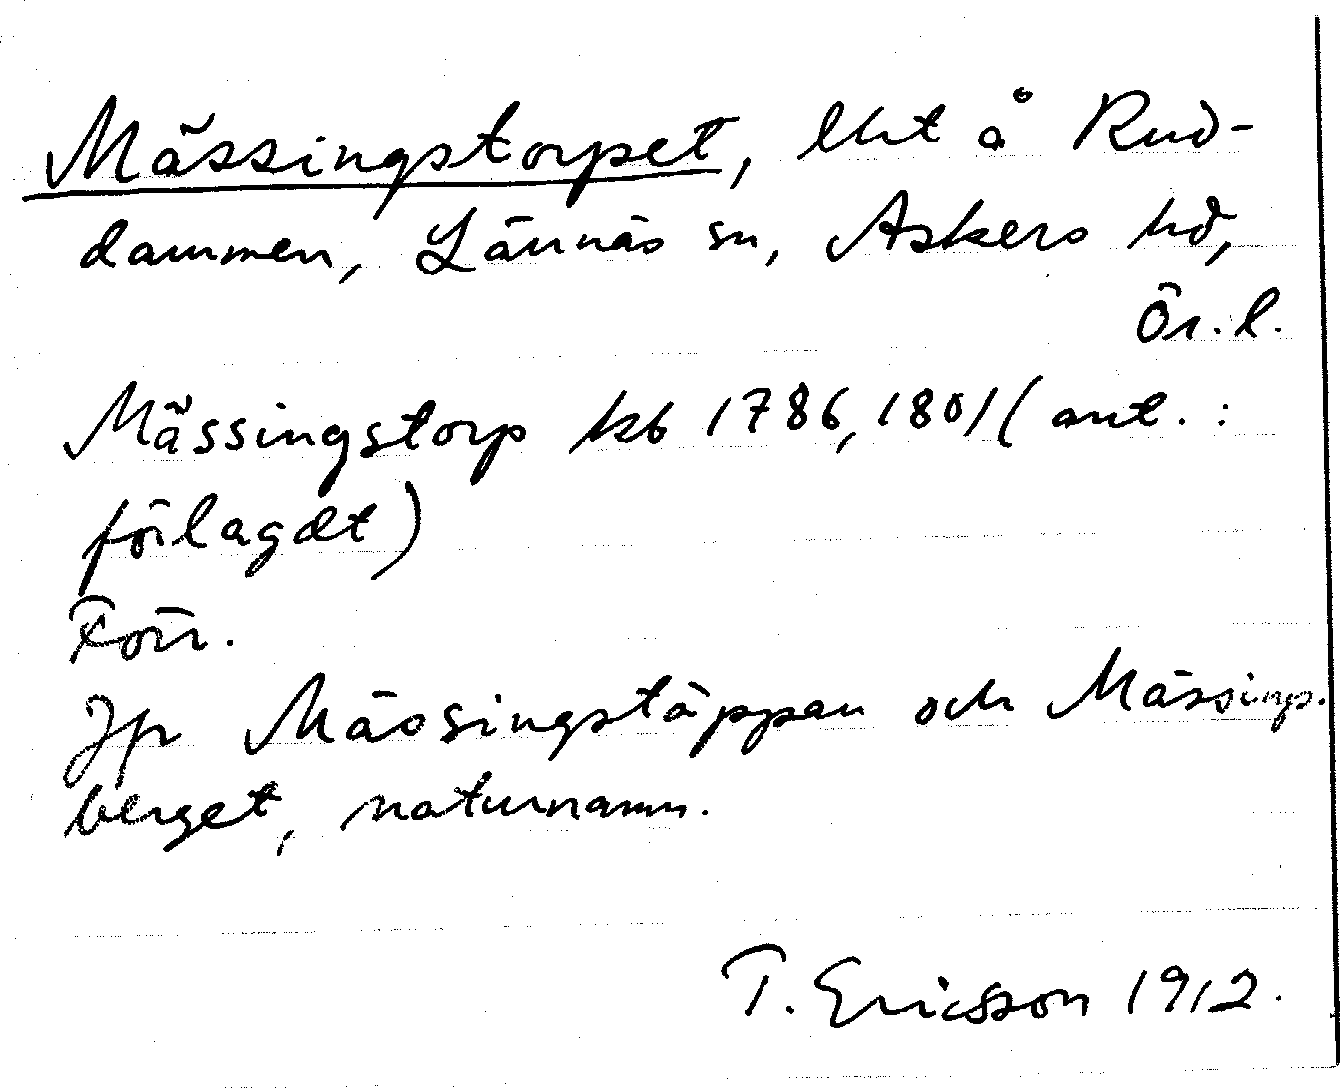 Mässingstorpet, lht å Rud-
dammen, Lännäs sn, Askers hd,
Ör. l.
Mässingstorp kb 1786, 1801 (ant. :
förlagdt)
Förr.
Jfr Mässingstäppan och Mässings-
berget, naturnamn.
T. Ericsson 1912.